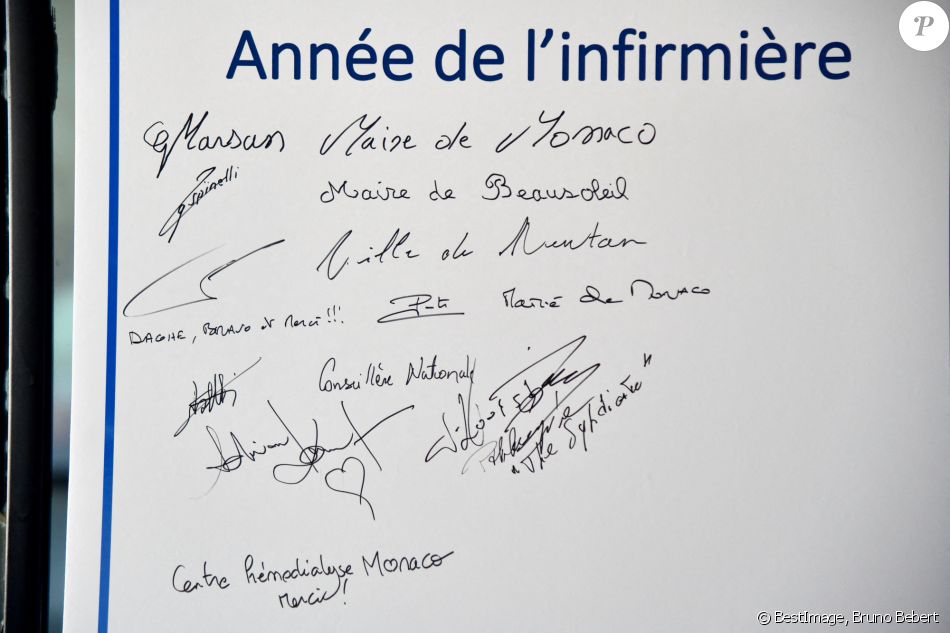 Année de l'infirmière
GMarsan Maire de Monaco
Spinelli Maire de Beausoleil
Ville de Menton
DAGHE, BRAVO et Merci !!!
Mairie de Monaco
Conseillère Nationale
"The Syndicate"
Centre hémodialyse Monaco
Merci !
P
© BestImage, Bruno Bebert